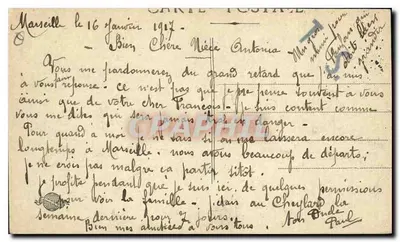 CARTE POSTALE
Marseille le 16 Janvier 1917
Bien Chère Nièce Antonia
Vous me pardonnerez du grand retard que j'ai mis
à vous réponse. Ce n'est pas que je ne pense souvent a vous
ainsi que de votre cher François. Je suis content comme
vous me dites qu'il sera mois de danger.
Pour quand a moi je ne sais si on me laissera encore
longtemps à Marseille. nous avons beaucoup de départs;
je ne crois pas malgré ça partir sitot.
Je profite pendant que je suis ici, de quelques permissions
pour voir la famille. j'étais au Cheylard la
semaine dernière pour 7 jours.
Bien mes amitiés à vous tous.
Ton Oncle
Paul